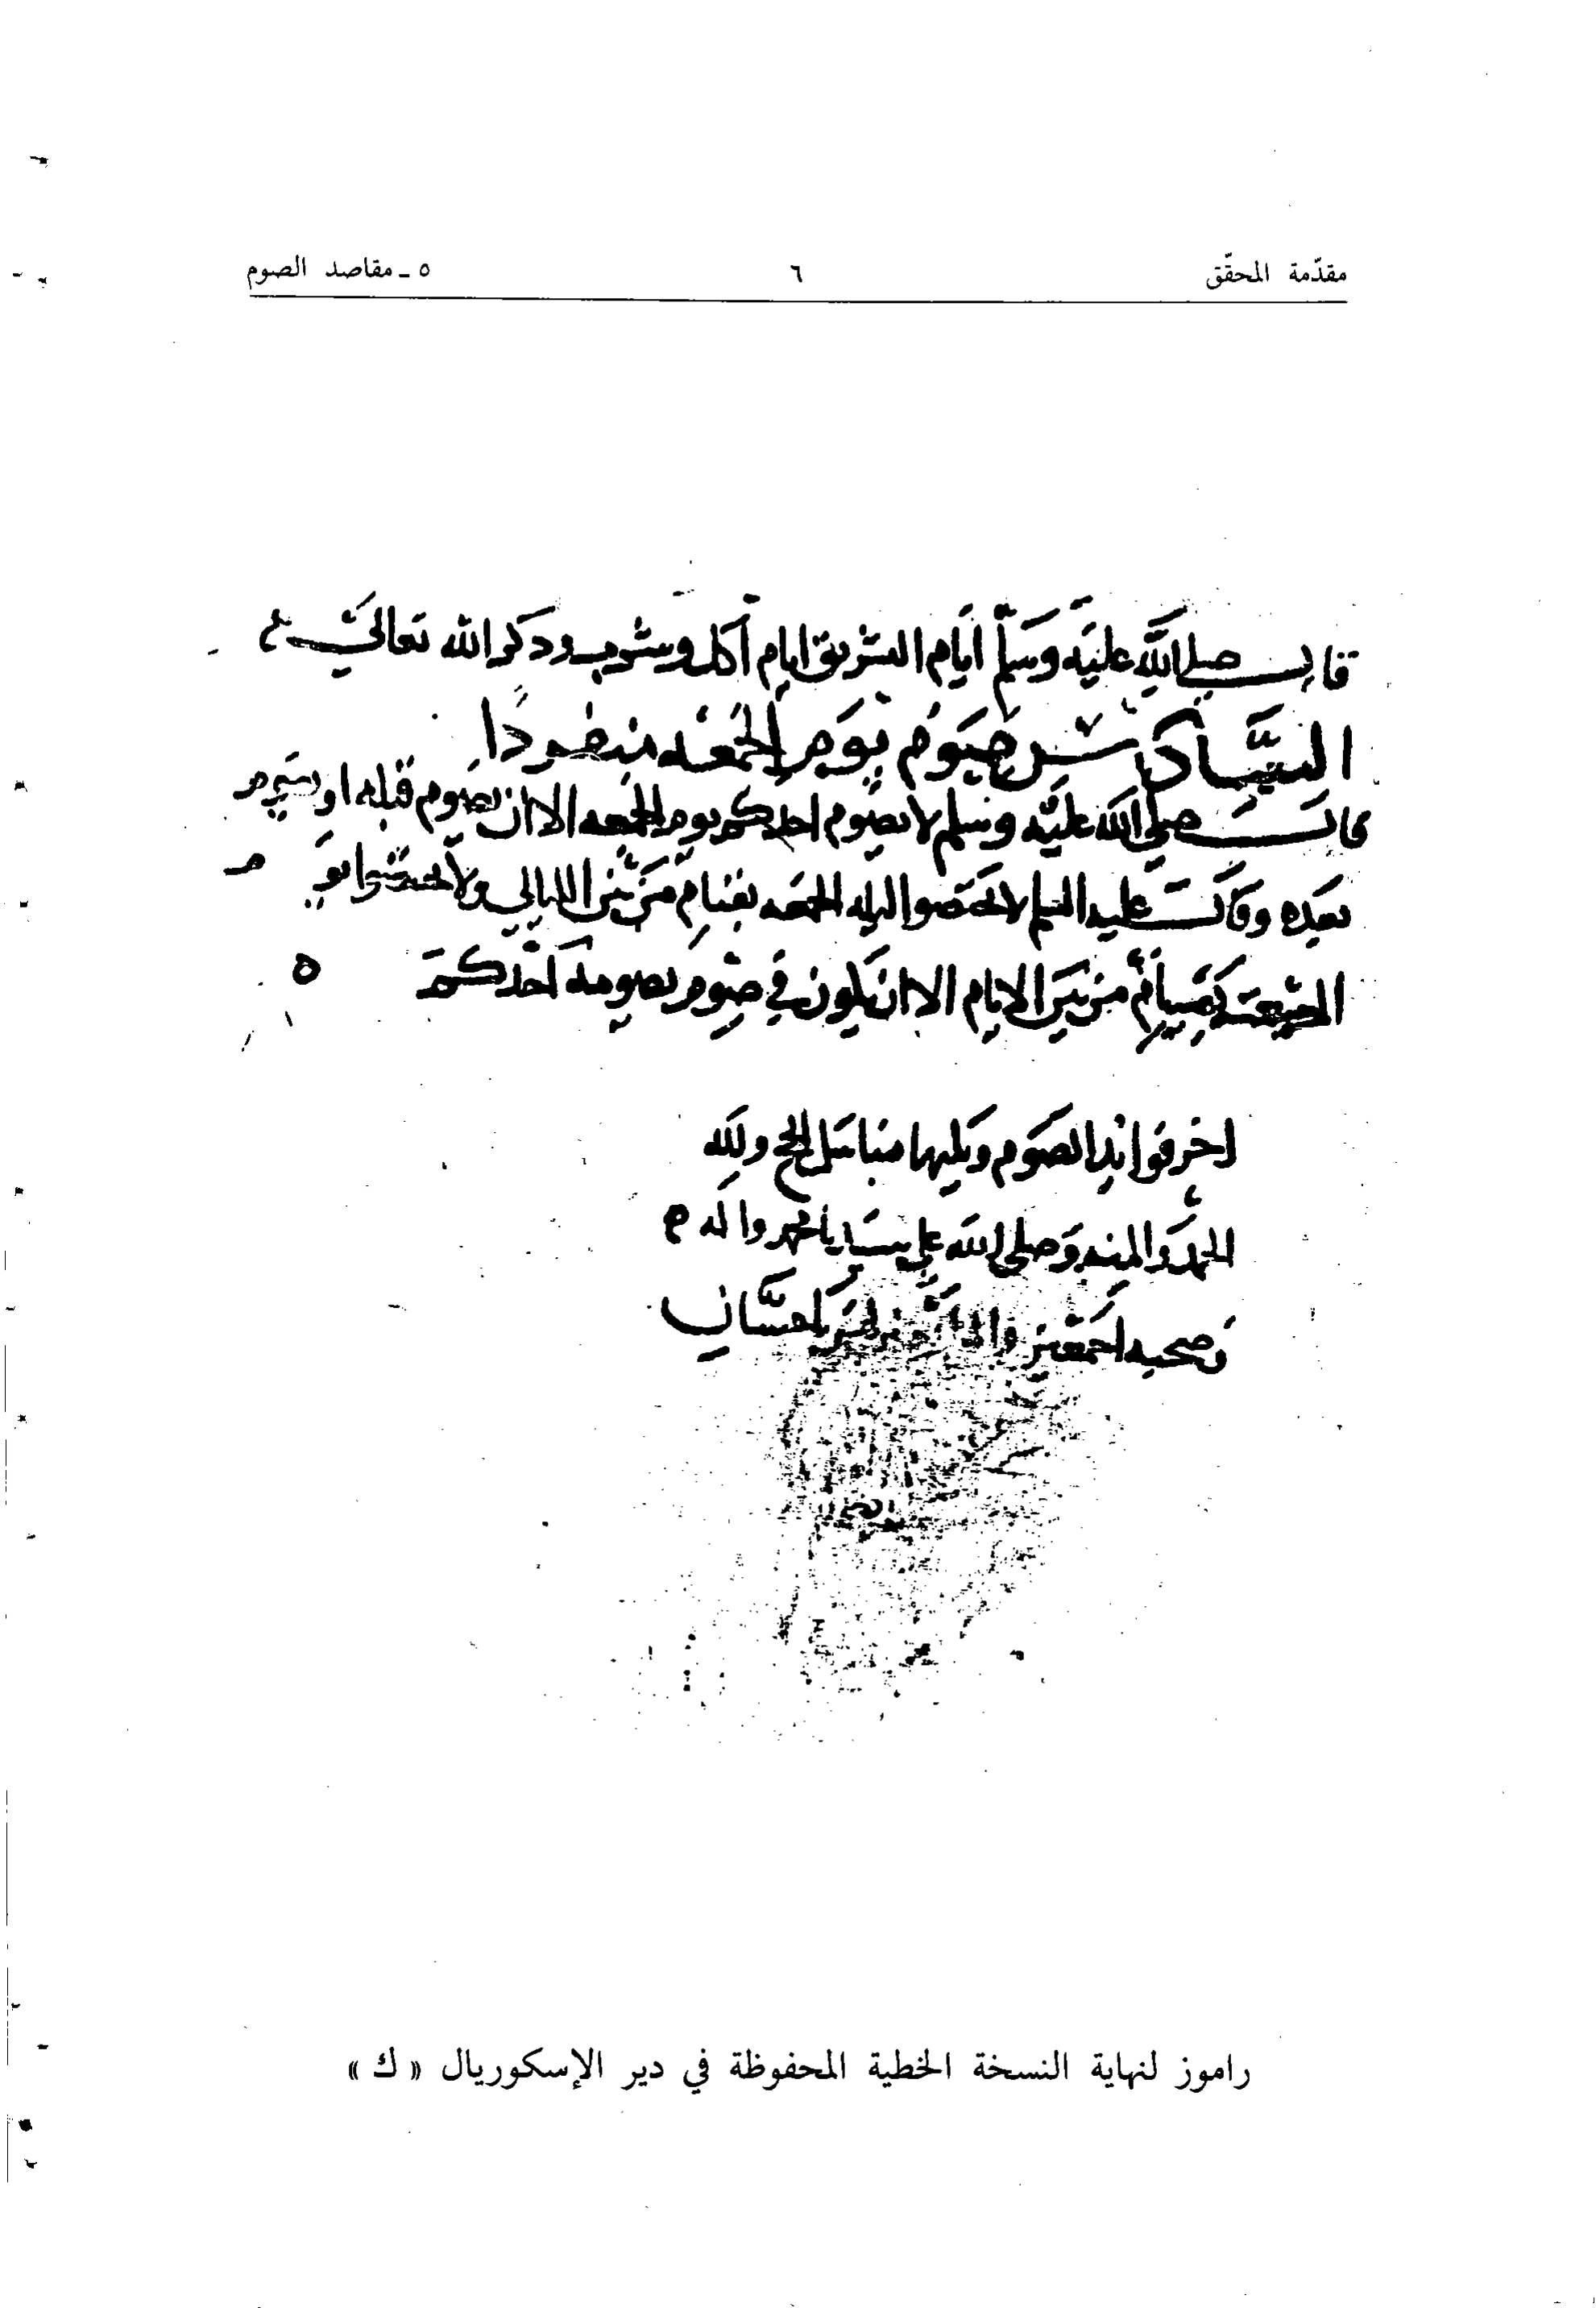 مقدّمة المحقّق ٦ ٥ ـ مقاصد الصوم
قال صلى الله عليه وسلم ايام التشريق ايام اكل وشرب وذكر الله تعالى
السادس صوم يوم الجمعه منفردا
قال صلى الله عليه وسلم لا يصوم احدكم يوم الجمعه الا ان يصوم قبله او يصوم
بعده وقال عليه السلم لا تختصوا ليله الجمعه بقيام من بين الليالي ولا تختصوا يو م
الجمعة بصيام من بين الايام الا ان يكون في صوم يصومه احدكم ٥
اخر فوائد الصوم ويليها مناسك الحج ولله
الحمد والمنه وصلى الله على سيدنا محمد واله
وصحبه اجمعين باحسان
راموز لنهاية النسخة الخطية المحفوظة في دير الإسكوريال « ك »